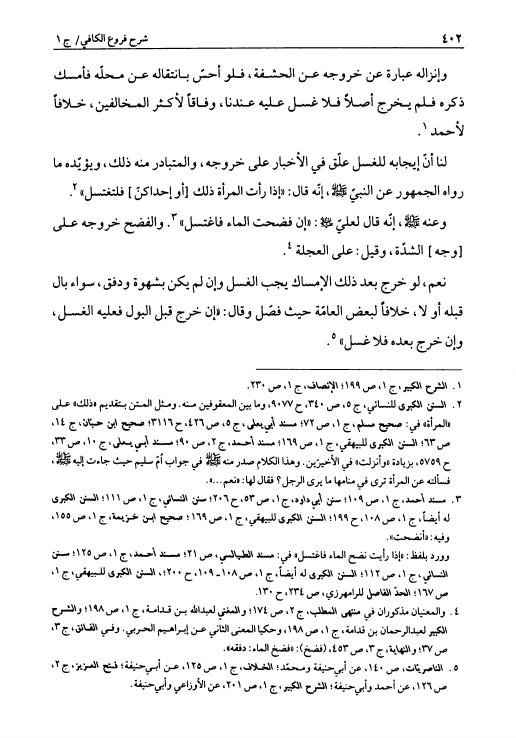 ٤٠٢
شرح فروع الكافي / ج ١
وإنزاله عبارة عن خروجه عن الحشفة، فلو أحسّ بانتقاله عن محلّه فأمسك
ذكره فلم يخرج أصلاً فلا غسل عليه عندنا، وفاقاً لأكثر المخالفين، خلافاً
لأحمد ١.
لنا أنّ إيجابه للغسل علّق في الأخبار على خروجه، والمتبادر منه ذلك، ويؤيّده ما
رواه الجمهور عن النبيّ ﷺ، إنّه قال: «إذا رأت المرأة ذلك [أو إحداكنّ] فلتغتسل» ٢.
وعنه ﷺ، إنّه قال لعليّ ﷷ: «إن فضحت الماء فاغتسل» ٣. والفضح خروجه على
[وجه] الشدّة، وقيل: على العجلة ٤.
نعم، لو خرج بعد ذلك الإمساك يجب الغسل وإن لم يكن بشهوة ودفق، سواء بال
قبله أو لا، خلافاً لبعض العامّة حيث فصّل وقال: «إن خرج قبل البول فعليه الغسل،
وإن خرج بعده فلا غسل» ٥.
١. الشرح الكبير، ج ١، ص ١٩٩؛ الإنصاف، ج ١، ص ٢٣٠.
٢. السنن الكبرى للنسائي، ج ٥، ص ٣٤٠، ح ٩٠٧٧، وما بين المعقوفين منه. ومثل المتن بتقديم «ذلك» على
«المرأة» في: صحيح مسلم، ج ١، ص ٧٢؛ مسند أبي يعلى، ج ٥، ص ٤٢٦، ح ٣١١٦؛ صحيح ابن حبّان، ج ١٤،
ص ٦٣؛ السنن الكبرى للبيهقي، ج ١، ص ١٦٩؛ مسند أحمد، ج ٢، ص ٩٠؛ مسند أبي يعلى، ج ١٠، ص ٣٣،
ح ٥٧٥٩، بزيادة «وأنزلت» في الأخيرين. وهذا الكلام صدر منه ﷺ في جواب أمّ سليم حيث جاءت إليه ﷺ،
فسألته عن المرأة ترى في منامها ما يرى الرجل؟ فقال لها: «نعم...».
٣. مسند أحمد، ج ١، ص ١٠٩؛ سنن أبي داود، ج ١، ص ٥٣، ح ٢٠٦؛ سنن النسائي، ج ١، ص ١١١؛ السنن الكبرى
له أيضاً، ج ١، ص ١٠٨، ح ١٩٩؛ السنن الكبرى للبيهقي، ج ١، ص ١٦٩؛ صحيح ابن خزيمة، ج ١، ص ١٥،
وفيه: «أنضحت».
وورد بلفظ: «إذا رأيت نضح الماء فاغتسل» في: مسند الطيالسي، ص ٢١؛ مسند أحمد، ج ١، ص ١٢٥؛ سنن
النسائي، ج ١، ص ١١٢؛ السنن الكبرى له أيضاً، ج ١، ص ١٠٨ـ١٠٩، ح ٢٠٠؛ السنن الكبرى للبيهقي، ج ١،
ص ١٦٧؛ الحدّ الفاصل للرامهرزي، ص ٢٣٤، ح ١٣٠.
٤. والمعنيان مذكوران في منتهى المطلب، ج ٢، ص ١٧٤؛ والمغني لعبدالله بن قدامة، ج ١، ص ١٩٨؛ والشرح
الكبير لعبدالرحمان بن قدامة، ج ١، ص ١٩٨، وحكيا المعنى الثاني عن إبراهيم الحربي. وفي الفائق، ج ٣،
ص ٣٧؛ والنهاية، ج ٣، ص ٤٥٣، (فضخ): «فضخ الماء: دفقه».
٥. الناصريّات، ص ١٤٠، عن أبي حنيفة ومحمّد؛ الخلاف، ج ١، ص ١٢٥، عن أبي حنيفة؛ فتح العزيز، ج ٢،
ص ١٢٦، عن أحمد وأبي حنيفة؛ الشرح الكبير، ج ١، ص ٢٠١، عن الأوزاعي وأبي حنيفة.